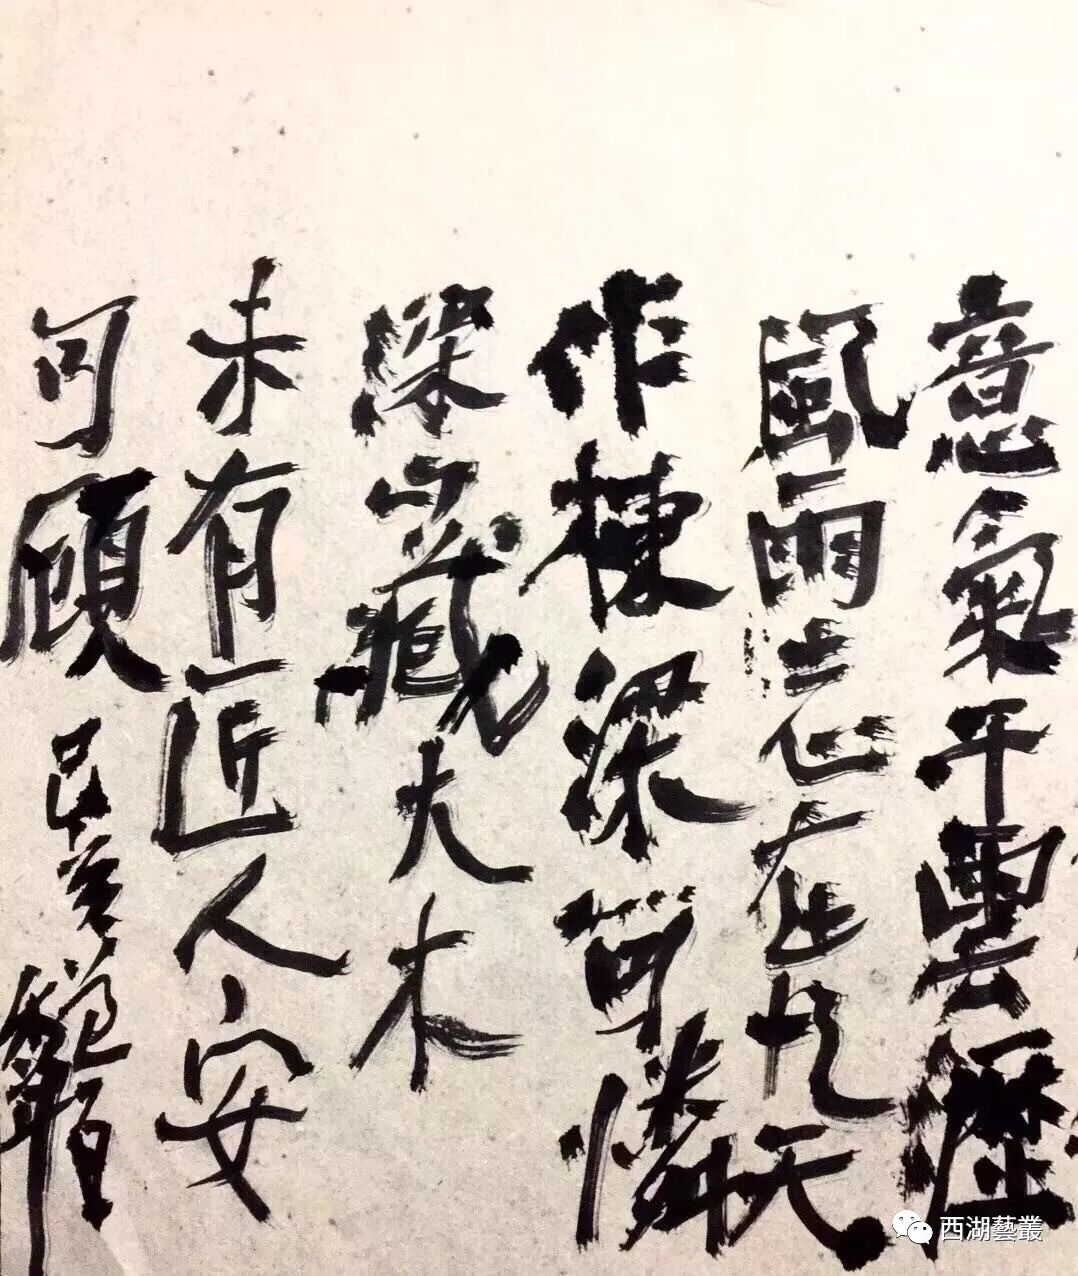 意氣干雲歷
風雨志在九天
作棟梁可憐
深山藏大木
未有匠人安
可顧
西湖藝叢